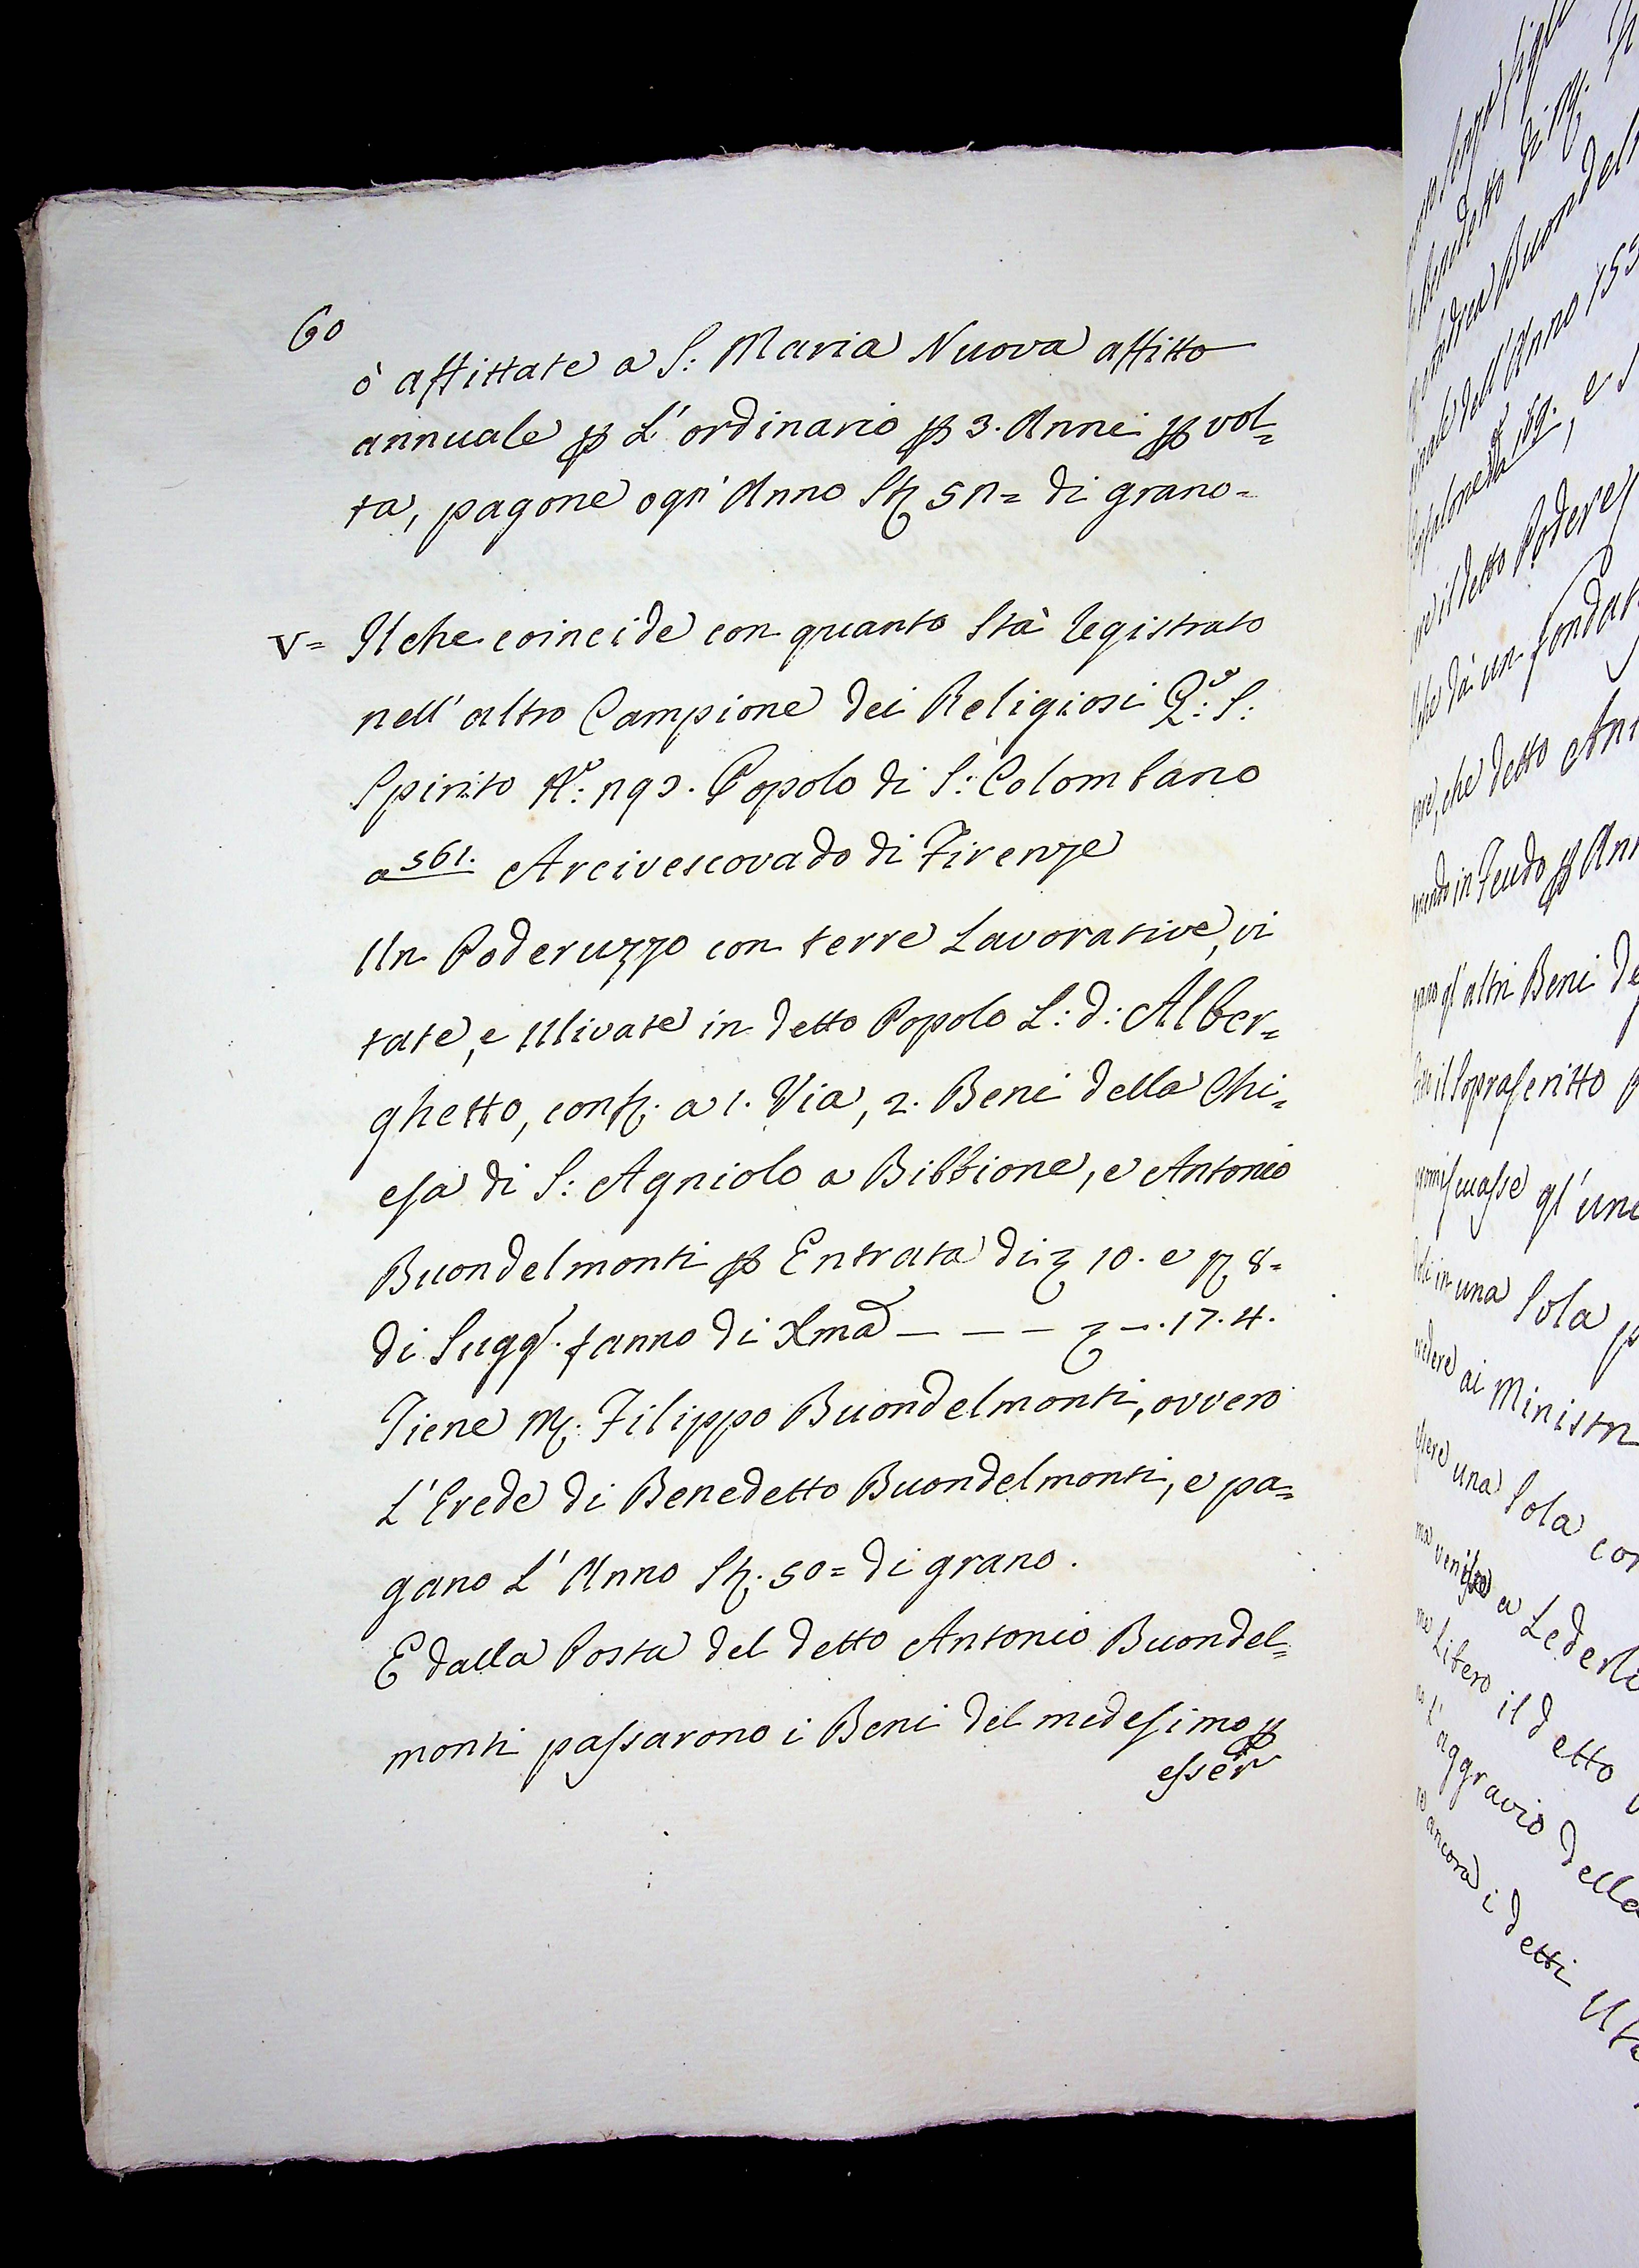 60
ò affittate a S: Maria Nuova affitto
annuale ꝑ L'ordinario ꝑ 3. Anni ꝑ vol=
ta, pagone ogn'Anno 52= di grano=
V= Il che coincide con quanto Stà Registrato
nell'altro Campione dei Religiosi Q.: S:
Spirito N.º: Popolo di S: Colombano
a 561. Arcivescovado di Firenze
Un Poderuzzo con terre Lavorative, vi
tate, e Ulivate in detto Popolo L: d: Alber=
ghetto, conf. a 1. Via, 2. Beni della Chi=
esa di S: Agniolo a Bibbione, e Antonio
Buondelmonti ꝑ Entrata di 10. e 8=
di Sugg. fanno di Xma — — — —.17.4.
Tiene M. Filippo Buondelmonti, ovvero
L'Erede di Benedetto Buondelmonti, e pa=
gano L'Anno St. 50= di grano.
E dalla Posta del detto Antonio Buondel=
monti passarono i Beni del medesimo ꝑ
esser
Buondel
dell'Anno 153
il detto Podere
dà un fondat
che detto Ant
in Feudo ꝑ Ann
gl'altri Beni de
il Soprascritto
gl'un
in una Sola p
ai Ministri
una Sola con
a Lederli
libero il detto
l'aggravio della
ancora i detti